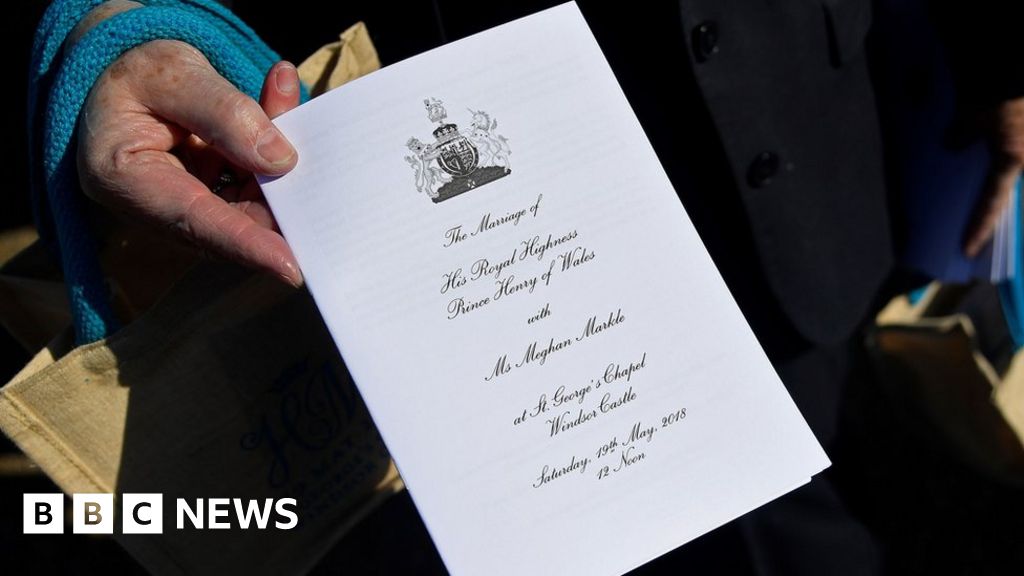 The Marriage of
His Royal Highness
Prince Henry of Wales
with
Ms Meghan Markle
at St. George's Chapel
Windsor Castle
Saturday, 19th May, 2018
12 Noon
H M
MAY
BBC NEWS